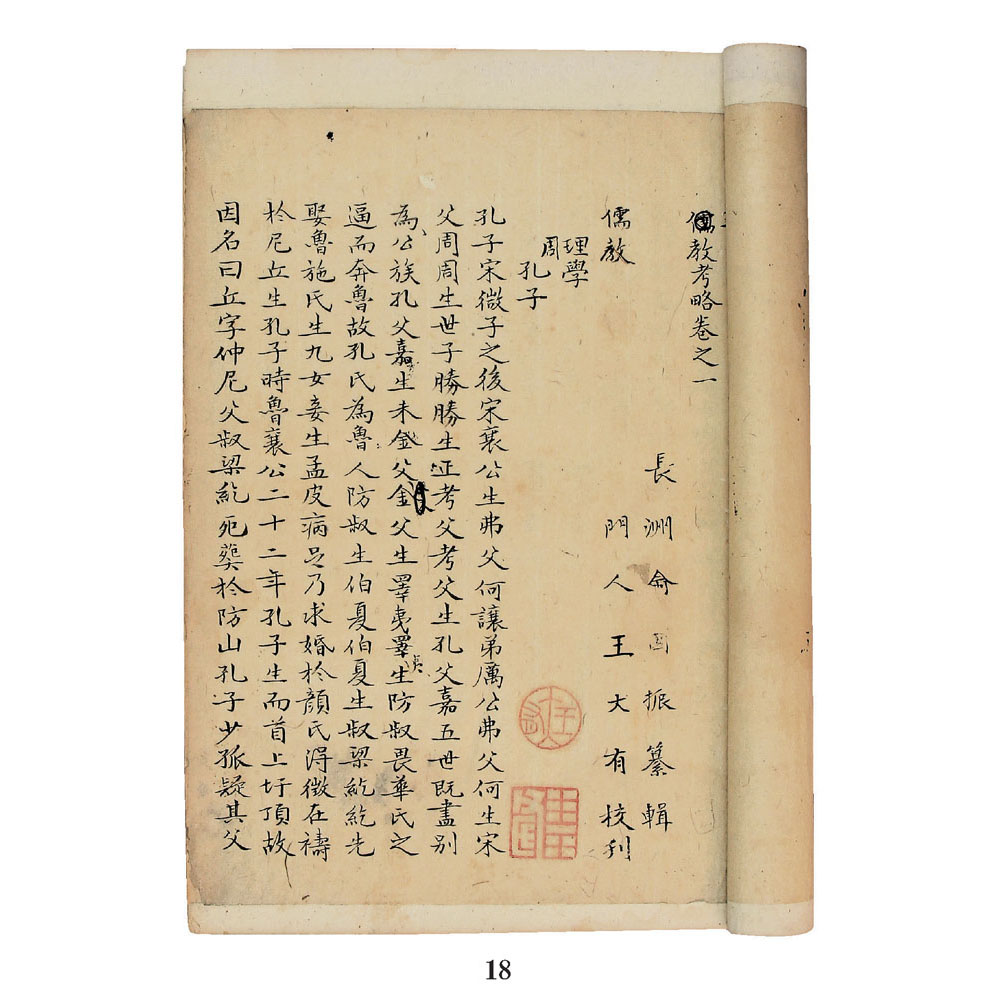 儒教考略卷之一
長洲俞國振纂輯
門人王大有校刋
儒教
理學
周
孔子
孔子宋微子之後宋襄公生弗父何讓弟厲公弗父何生宋
父周周生世子勝勝生正考父考父生孔父嘉五世既盡別
為公族孔父嘉生木金父金父生睪夷睪夷生防叔畏華氏之
逼而奔魯故孔氏為魯人防叔生伯夏伯夏生叔梁紇紇先
娶魯施氏生九女妾生孟皮病足乃求婚於顏氏淂徵在禱
於尼丘生孔子時魯襄公二十二年孔子生而首上圩頂故
因名曰丘字仲尼父叔梁紇死葬於防山孔子少孤疑其父
18